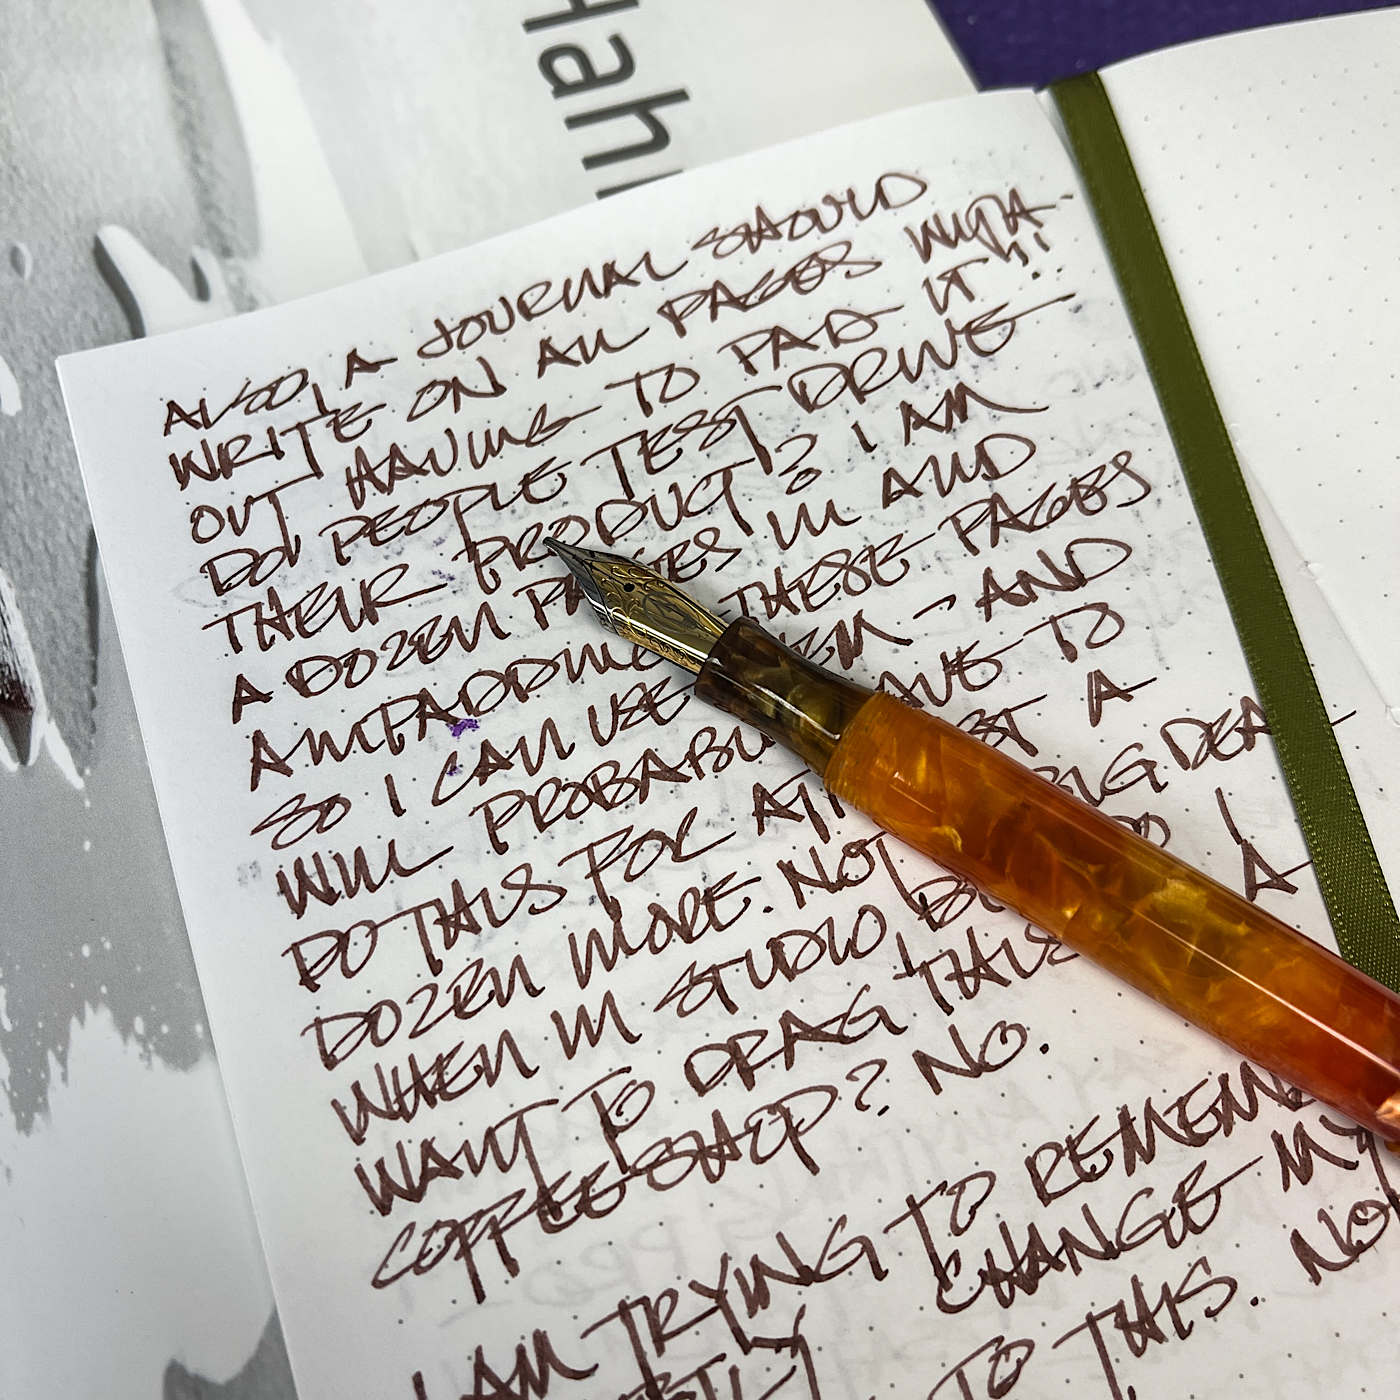 Hah
ALSO, A JOURNAL SHOULD
WRITE ON ALL PAGES WITH-
OUT HAVING TO PAD IT!!
DO PEOPLE TEST DRIVE
THEIR PRODUCT? I AM
A DOZEN PAGES IN AND
AM PADDING THESE PAGES
SO I CAN USE THEM - AND
WILL PROBABLY HAVE TO
DO THIS FOR AT LEAST A
DOZEN MORE. NOT BIG DEAL
WHEN IN STUDIO, BUT DO I
WANT TO DRAG THIS A
COFFEE SHOP? NO.
I AM TRYING TO REMEMB
CHANGE MY
TO THIS. NO